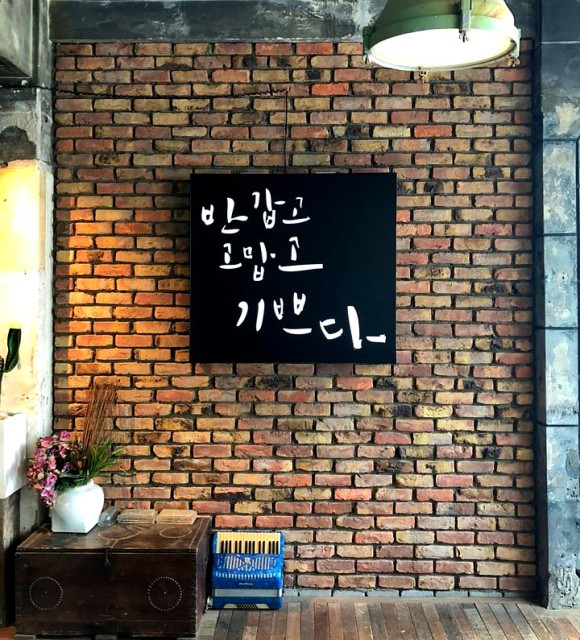 반갑고
고맙고
기쁘다